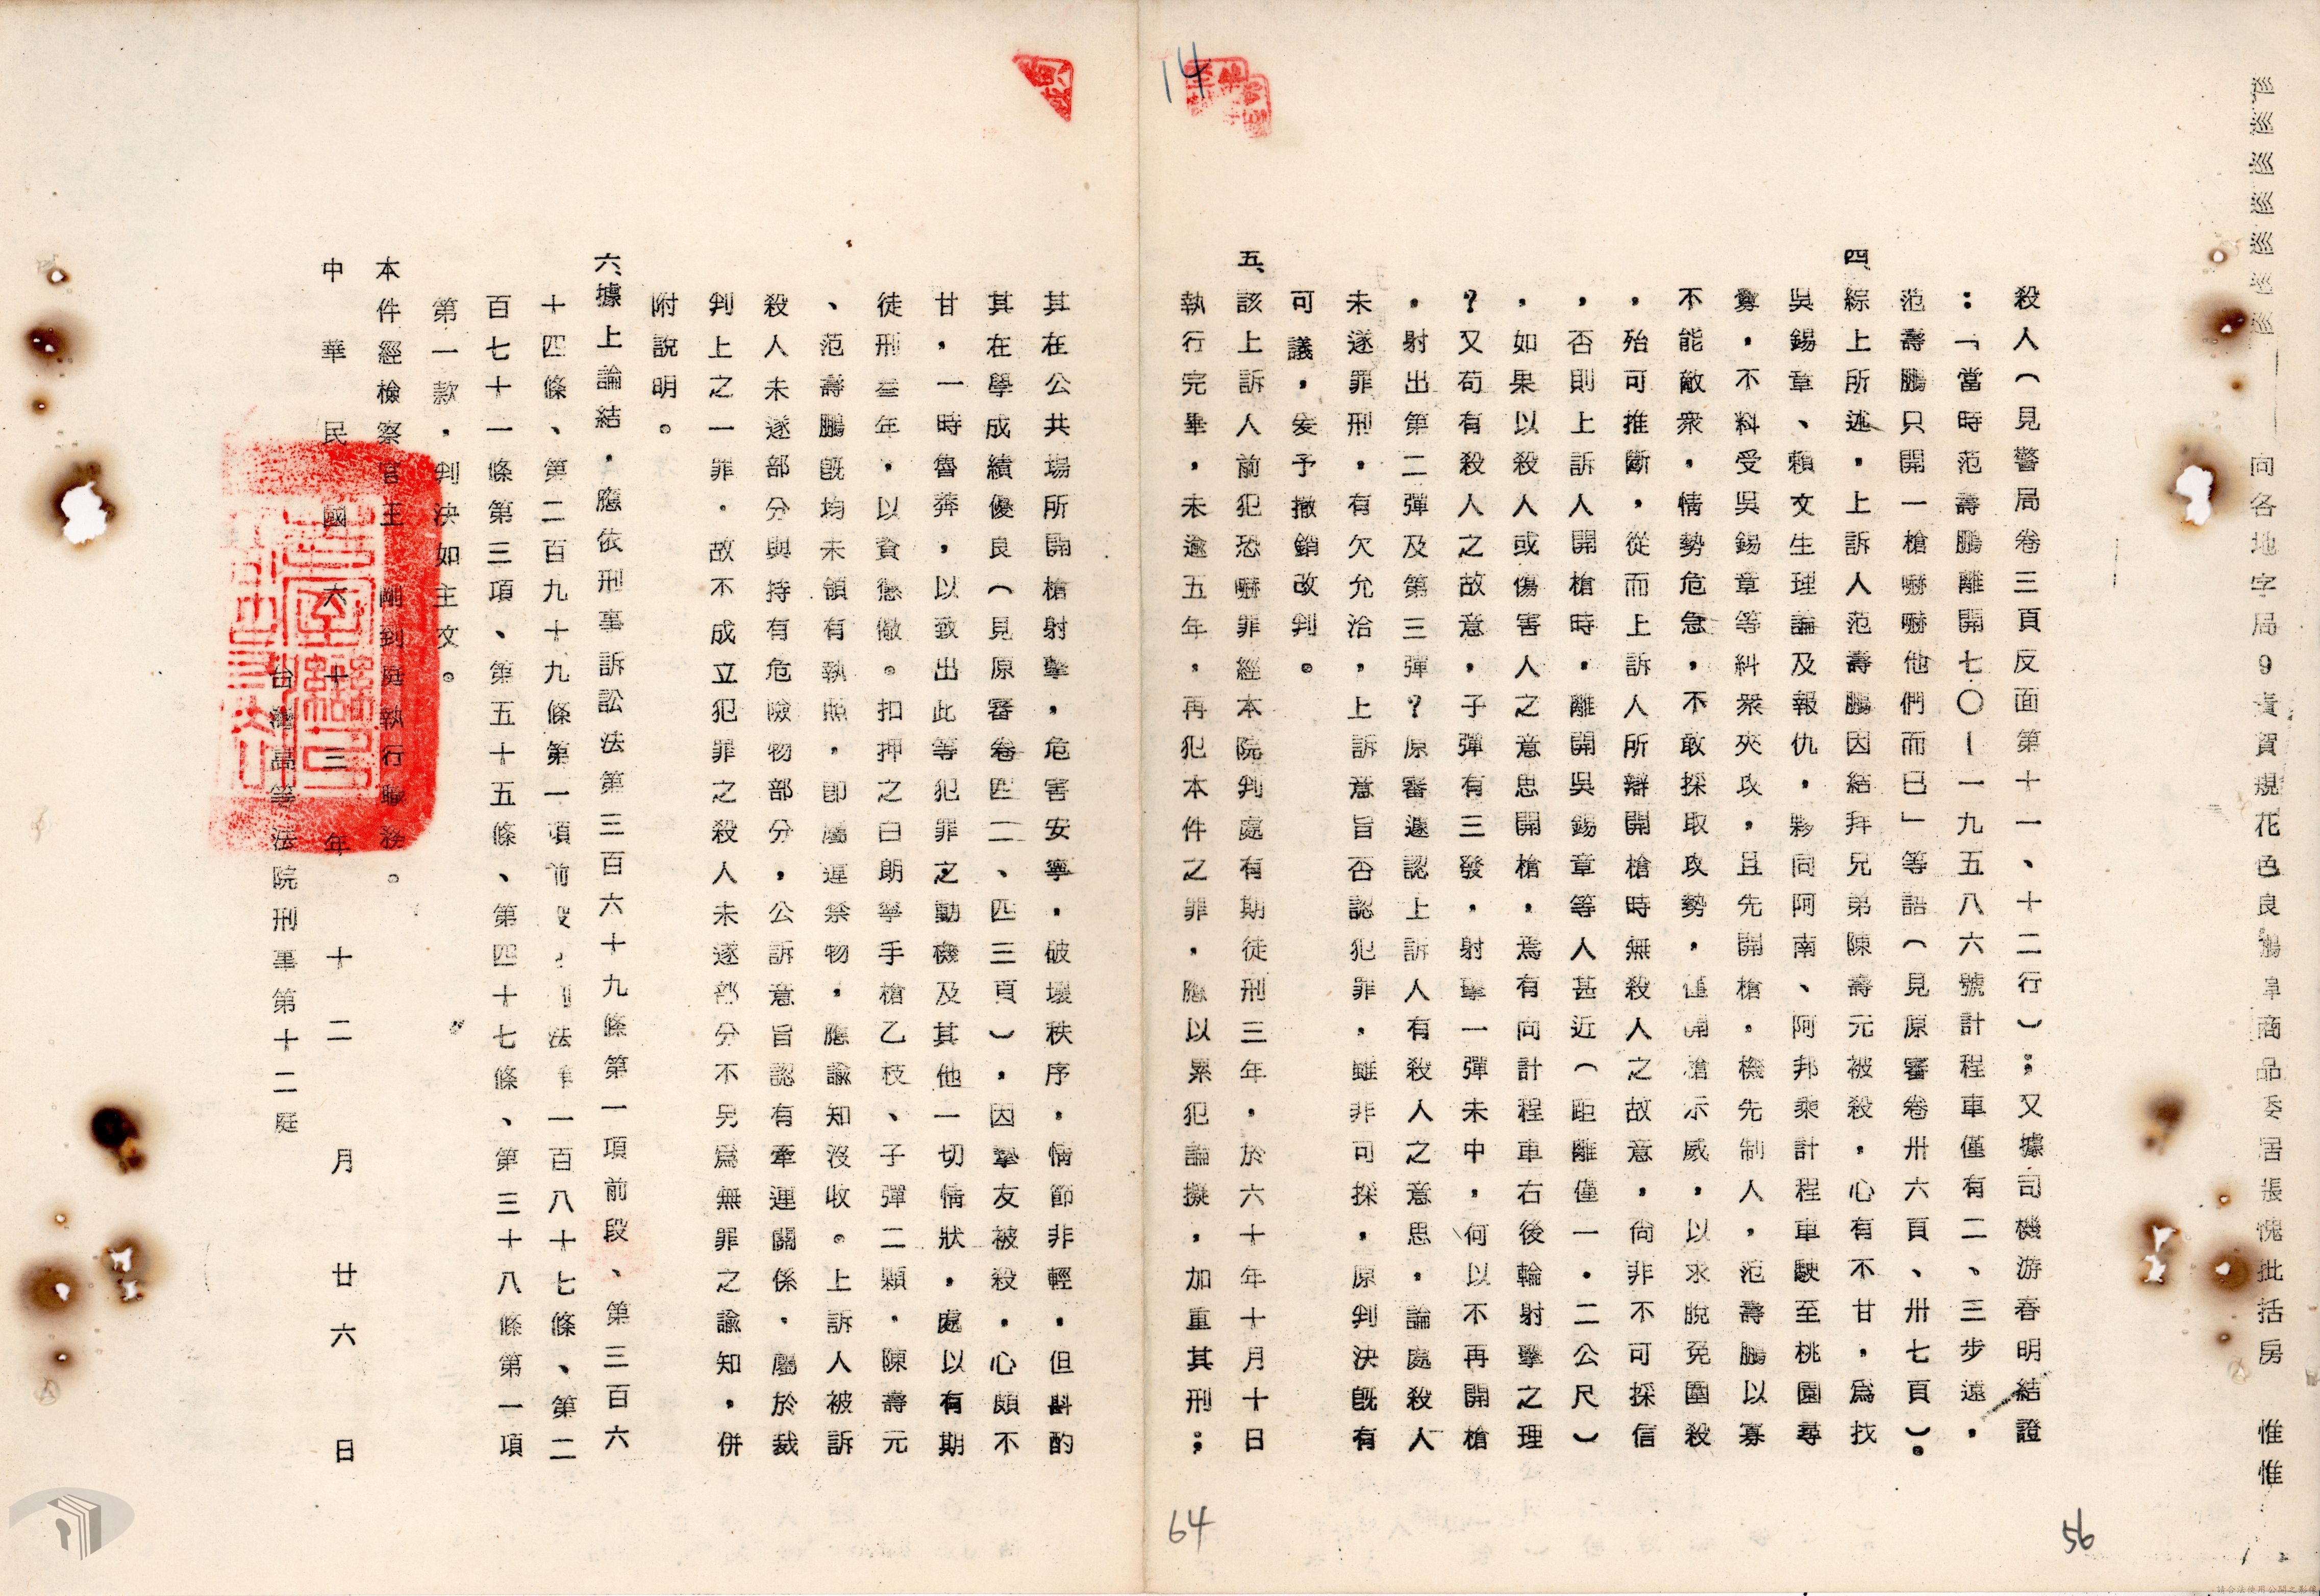 向各地字局9責賀規花色良 商品委居張愧批括房　惟惟
殺人（見警局卷三頁反面第十一、十二行）；又據司機游春明結證
：「當時范壽鵬離開七〇－一九五八六號計程車僅有二、三步遠，
范壽鵬只開一槍嚇嚇他們而已」等語（見原審卷卅六頁、卅七頁）。
四、綜上所述，上訴人范壽鵬因結拜兄弟陳壽元被殺，心有不甘，為找
吳錫章、賴文生理論及報仇，夥同阿南、阿邦乘計程車駛至桃園尋
釁，不料受吳錫章等糾眾夾攻，且先開槍，機先制人，范壽鵬以寡
不能敵衆，情勢危急，不敢採取攻勢，僅開槍示威，以求脫免圍殺
，殆可推斷，從而上訴人所辯開槍時無殺人之故意，尙非不可採信
，否則上訴人開槍時，離開吳錫章等人甚近（距離僅一．二公尺）
，如果以殺人或傷害人之意思開槍，焉有向計程車右後輪射擊之理
？又苟有殺人之故意，子彈有三發，射擊一彈未中，何以不再開槍
，射出第二彈及第三彈？原審遽認上訴人有殺人之意思，論處殺人
未遂罪刑，有欠允洽，上訴意旨否認犯罪，雖非可採，原判決旣有
可議，爰予撤銷改判。
五、該上訴人前犯恐嚇罪經本院判處有期徒刑三年，於六十年十月十日
執行完畢，未逾五年，再犯本件之罪，應以累犯論擬，加重其刑；
其在公共場所開槍射擊，危害安寧，破壞秩序，情節非輕，但斟酌
其在學成績優良（見原審卷四二、四三頁），因摯友被殺，心頗不
甘，一時魯莽，以致出此等犯罪之動機及其他一切情狀，處以有期
徒刑叁年，以資懲儆。扣押之白朗寧手槍乙枝、子彈二顆，陳壽元
、范壽鵬旣均未領有執照，卽屬違禁物，應諭知沒收。上訴人被訴
殺人未遂部分與持有危險物部分，公訴意旨認有牽連關係，屬於裁
判上之一罪，故不成立犯罪之殺人未遂部分不另爲無罪之諭知，併
附說明。
六、據上論結，應依刑事訴訟法第三百六十九條第一項前段、第三百六
十四條、第二百九十九條第一項前段，刑法第一百八十七條、第二
百七十一條第三項、第五十五條、第四十七條、第三十八條第一項
第一款，判決如主文。
本件經檢察官王　剛到庭執行職務。
中華民國六十三年十二月廿六日
台灣高等法院刑事第十二庭
14
64
56